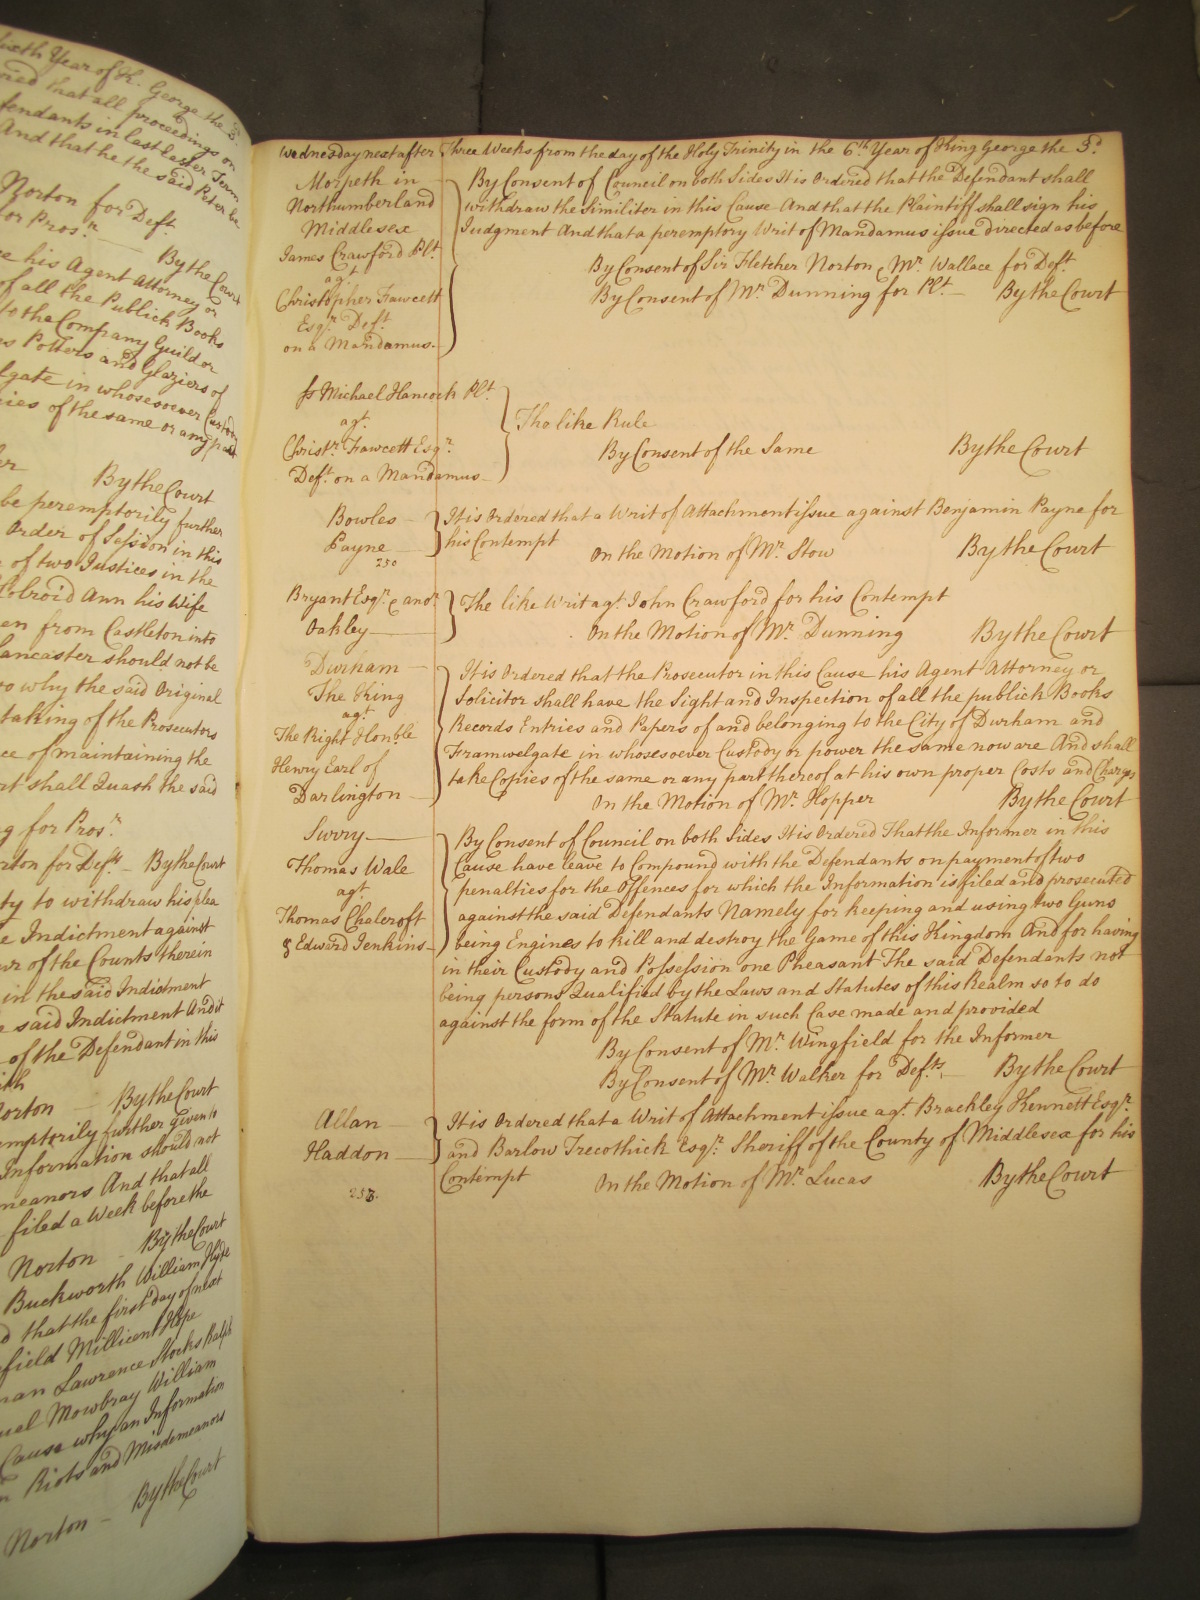 Sixth Year of K. George the 3.
that all proceedings on
fendants in last Easter Term
And that he the said Peter be
Norton for Deft
for Pros.r By the Court
e his Agent Attorney or
of all the Publick Books
to the Company Guild or
s Potters and Glaziers of
lgate in whosesoever Custody
ies of the same or any part
By the Court
be peremptorily further
Order of Session in this
of two Justices in the
Holroid Ann his Wife
en from Castleton into
ancaster should not be
o why the said Original
taking of the Prosecutors
ce of maintaining the
rt shall Quash the said
g for Pros.r
rton for Def.ts By the Court
ty to withdraw his plea
e Indictment against
of the Counts therein
in the said Indictment
said Indictment And it
of the Defendant in this
Norton By the Court
mptorily further given to
Information should not
meanors And that all
filed a Week before the
Norton By the Court
Buckworth William Hyde
d that the first day of next
field Millicent Hope
man Lawrence Stocks Ralph
uel Mowbray William
Cause why an Information
Riots and Misdemeanors
Norton By the Court
Wednesday next after Three Weeks from the day of the Holy Trinity in the 6th Year of King George the 3d
Morpeth in
Northumberland
Middlesex
James Crawford Plt.
agt.
Christopher Fawcett
Esqr. Deft.
on a Mandamus
By Consent of Council on both Sides It is Ordered that the Defendant shall
withdraw the Similiter in this Cause And that the Plaintiff shall sign his
Judgment And that a peremptory Writ of Mandamus issue directed as before
By Consent of Sir Fletcher Norton & Mr. Wallace for Deft.
By Consent of Mr. Dunning for Plt. By the Court
Michael Hancock Plt.
agt.
Christr. Fawcett Esqr.
Deft. on a Mandamus
The like Rule
By Consent of the Same By the Court
Bowles
Payne
250
It is Ordered that a Writ of Attachment issue against Benjamin Payne for
his Contempt On the Motion of Mr. Stow By the Court
Bryant Esqr. & anor.
Oakley
The like Writ agt. John Crawford for his Contempt
On the Motion of Mr. Dunning By the Court
Durham
The King
agt.
The Right Honble
Henry Earl of
Darlington
It is Ordered that the Prosecutor in this Cause his Agent Attorney or
Solicitor shall have the Sight and Inspection of all the publick Books
Records Entries and Papers of and belonging to the City of Durham and
Framwelgate in whosesoever Custody or power the same now are And shall
take Copies of the same or any part thereof at his own proper Costs and Charges
On the Motion of Mr. Hopper By the Court
Surry
Thomas Wale
agt.
Thomas Chalcroft
& Edward Jenkins
By Consent of Council on both Sides It is Ordered That the Informer in this
Cause have leave to Compound with the Defendants on payment of two
penalties for the Offences for which the Information is filed and prosecuted
against the said Defendants Namely for keeping and using two Guns
being Engines to kill and destroy the Game of this Kingdom And for having
in their Custody and Possession one Pheasant The said Defendants not
being persons Qualified by the Laws and Statutes of this Realm so to do
against the form of the Statute in such Case made and provided
By Consent of Mr. Wingfield for the Informer
By Consent of Mr. Walker for Defts. By the Court
Allan
Haddon
It is Ordered that a Writ of Attachment issue agt. Brackley Kennett Esqr.
and Barlow Trecothick Esqr. Sheriff of the County of Middlesex for his
Contempt On the Motion of Mr. Lucas By the Court